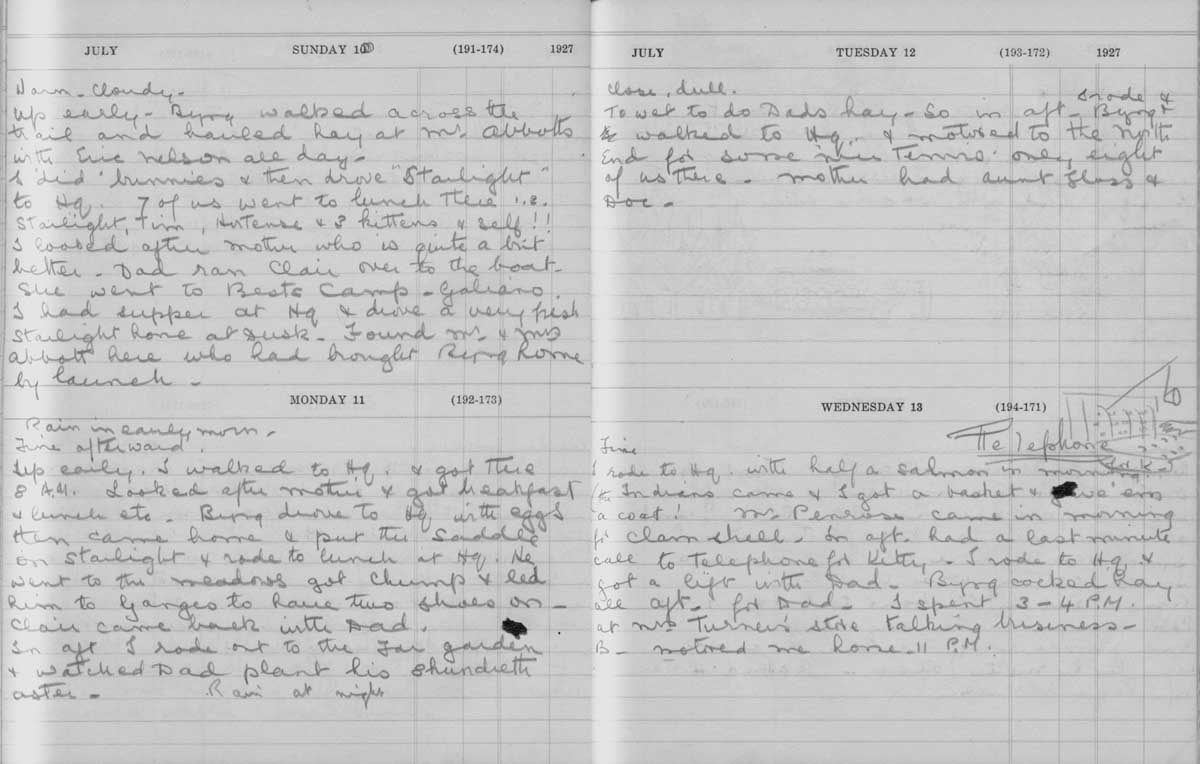 JULY SUNDAY 10 (191-174) 1927
Warm - Cloudy -
Up early - Byng walked across the
trail and hauled hay at Mr. Abbotts
with Eric Nelson all day -
I 'did' bunnies & then drove "Starlight"
to Hq. 7 of us went to lunch there i.e.
Starlight, Tim, Hortense & 3 kittens & self!!
I looked after mother who is quite a bit
better - Dad ran Clair over to the boat -
She went to Bests Camp - Galiano.
I had supper at Hq & drove a very fresh
Starlight home at Dusk - Found Mr. & Mrs
Abbott here who had brought Byng home
by launch -
MONDAY 11 (192-173)
Rain in early morn -
Fine afterward.
Up early. I walked to Hq. & got there
8 A.M. Looked after mother & got breakfast
& lunch etc - Byng drove to Hq with eggs
then came home & put the Saddle
on Starlight & rode to lunch at Hq. He
went to the meadows got Chump & led
him to Ganges to have two shoes on -
Clair came back with Dad.
In aft I rode out to the Far garden
& watched Dad plant his
aster - Rain at night
JULY TUESDAY 12 (193-172) 1927
Close, dull.
To wet to do Dads hay - So in aft - Byng I rode &
walked to Hq. & motored to the North
End for some Tennis. only eight
of us there - Mother had Aunt &
Doc -
WEDNESDAY 13 (194-171)
The Telephone
Fine
I rode to Hq. with half a salmon in morning.
Indians came & I got a basket & gave 'em
a coat! Mr. Penrose came in morning
for Clam shell. In aft. had a last minute
call to Telephone for Kitty - I rode to Hq &
got a lift with Dad - Byng cocked hay
all aft - for Dad - I spent 3 - 4 P.M.
at Mrs Turner's store talking business -
B - motored me home 11 P.M.